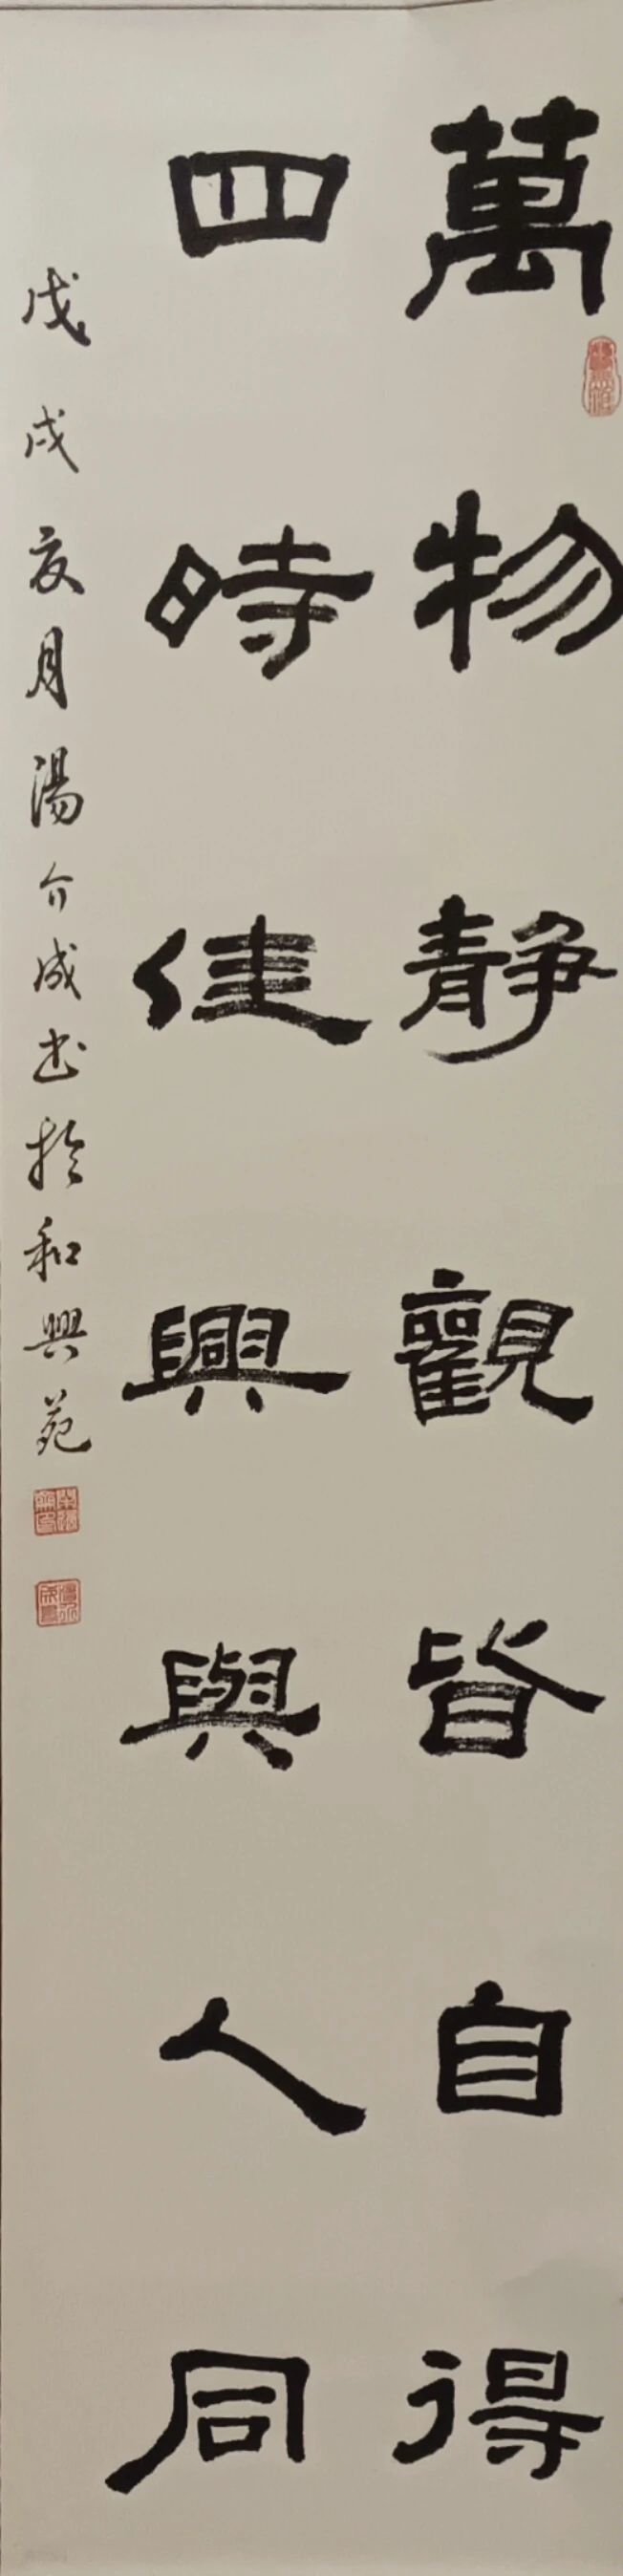 萬物静觀皆自得
四時佳興與人同
戊戌夏月湯介成书於和興苑